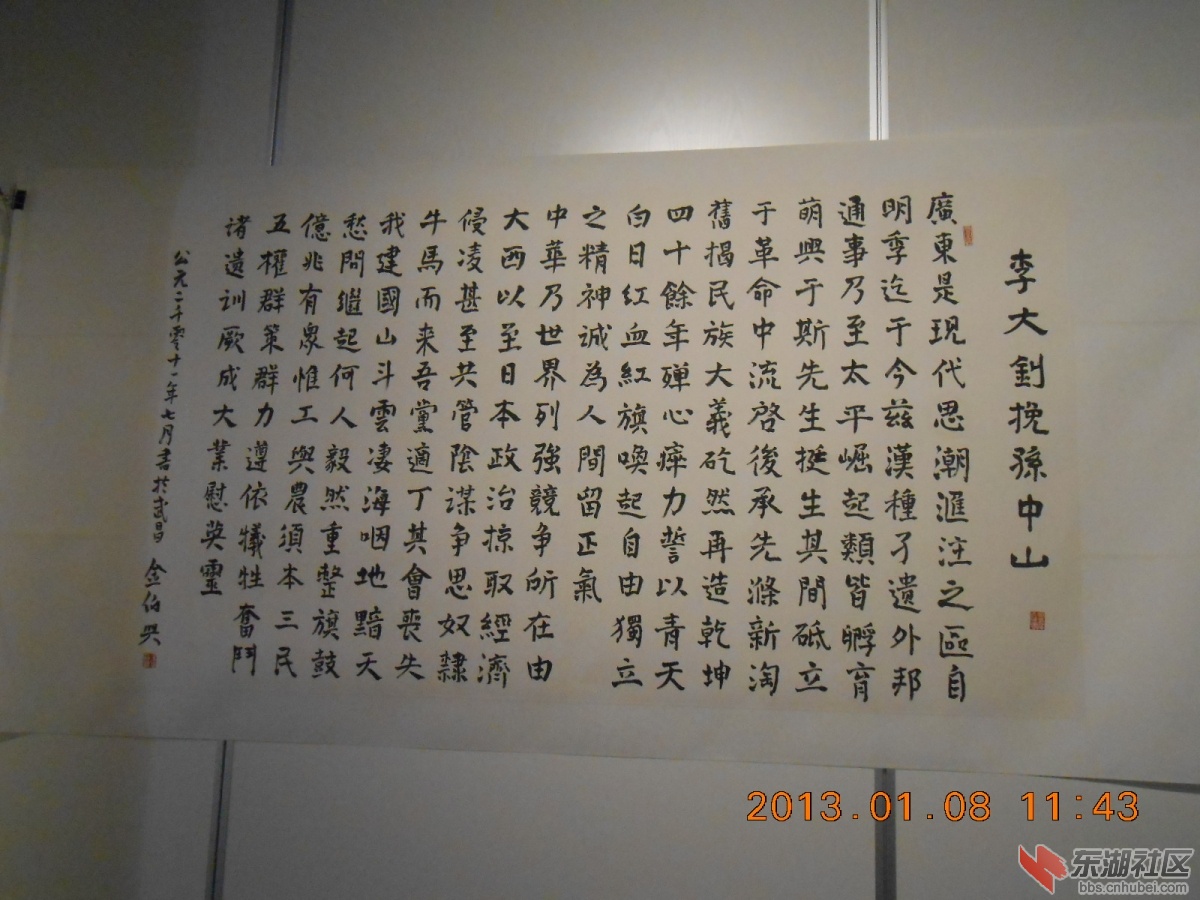 李大釗挽孫中山
廣東是現代思潮滙注之區自
明季迄于今兹漢種孑遺外邦
通事乃至太平崛起類皆孵育
萌興于斯先生挺生其間砥立
于革命中流啓後承先滌新淘
舊揭民族大義矻然再造乾坤
四十餘年殫心瘁力誓以青天
白日红血紅旗喚起自由獨立
之精神誠為人間留正氣
中華乃世界列強競争所在由
大西以至日本政治掠取經濟
侵凌甚至共管陰謀争思奴隸
牛馬而来吾黨適丁其會喪失
我建國山斗雲凄海咽地黯天
愁問繼起何人毅然重整旗鼓
億兆有衆惟工與農須本三民
五權群策群力遵依犧牲奮鬥
诸遺训厥成大業慰英靈
公元二千零十一年七月書於武昌 金伯興
2013.01.08 11:43
东湖社区
bbs.cnhubei.com